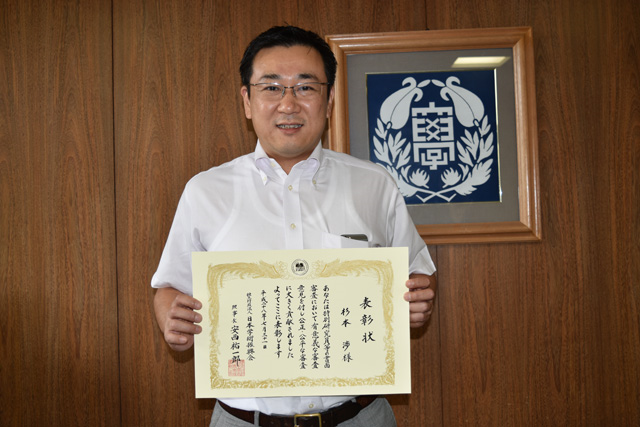 表彰状
杉本 渉様
あなたは特別研究員等の書面
審査において有意義な審査
意見を付し公正・公平な審査
に大きく貢献されました
よってここに表彰します
平成二十八年七月三十一日
独立行政法人 日本学術振興会
理事長 安西祐一郎
學